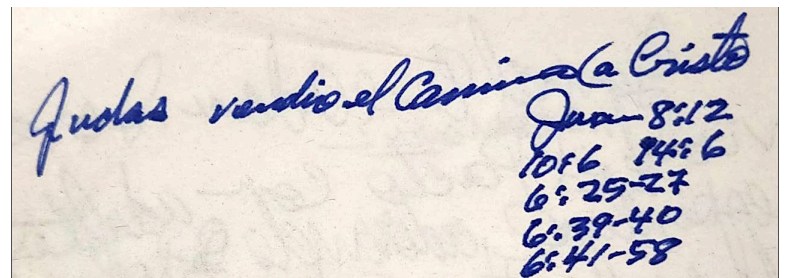 Judas vendio el Camino (a Cristo
Juan 8:12
10:6 14:6
6:25-27
6:39-40
6:41-58